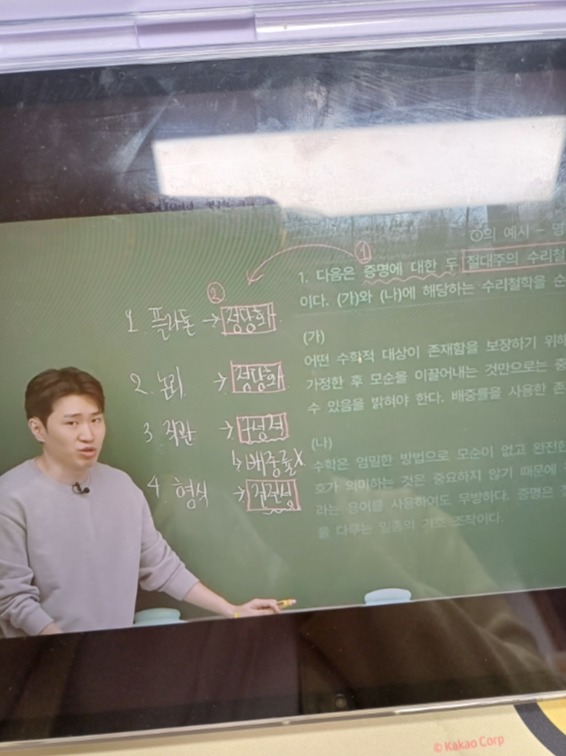 ①의 예시 -
①
1. 다음은 증명에 대한 두 절대주의 수리철
이다. (가)와 (나)에 해당하는 수리철학을 순
②
1. 플라톤 → 정당화
(가)
어떤 수학적 대상이 존재함을 보장하기 위해
2. 논리 → 정당화
가정한 후 모순을 이끌어내는 것만으로는 증
수 있음을 밝혀야 한다. 배중률을 사용한 존
3. 직관 → 구성적
↳ 배중률X
(나)
수학은 엄밀한 방법으로 모순이 없고 완전한
4. 형식 →
호가 의미하는 것은 중요하지 않기 때문에
라는 용어를 사용하여도 무방하다. 증명은
를 다루는 일종의 기호 조작이다.
© Kakao Corp